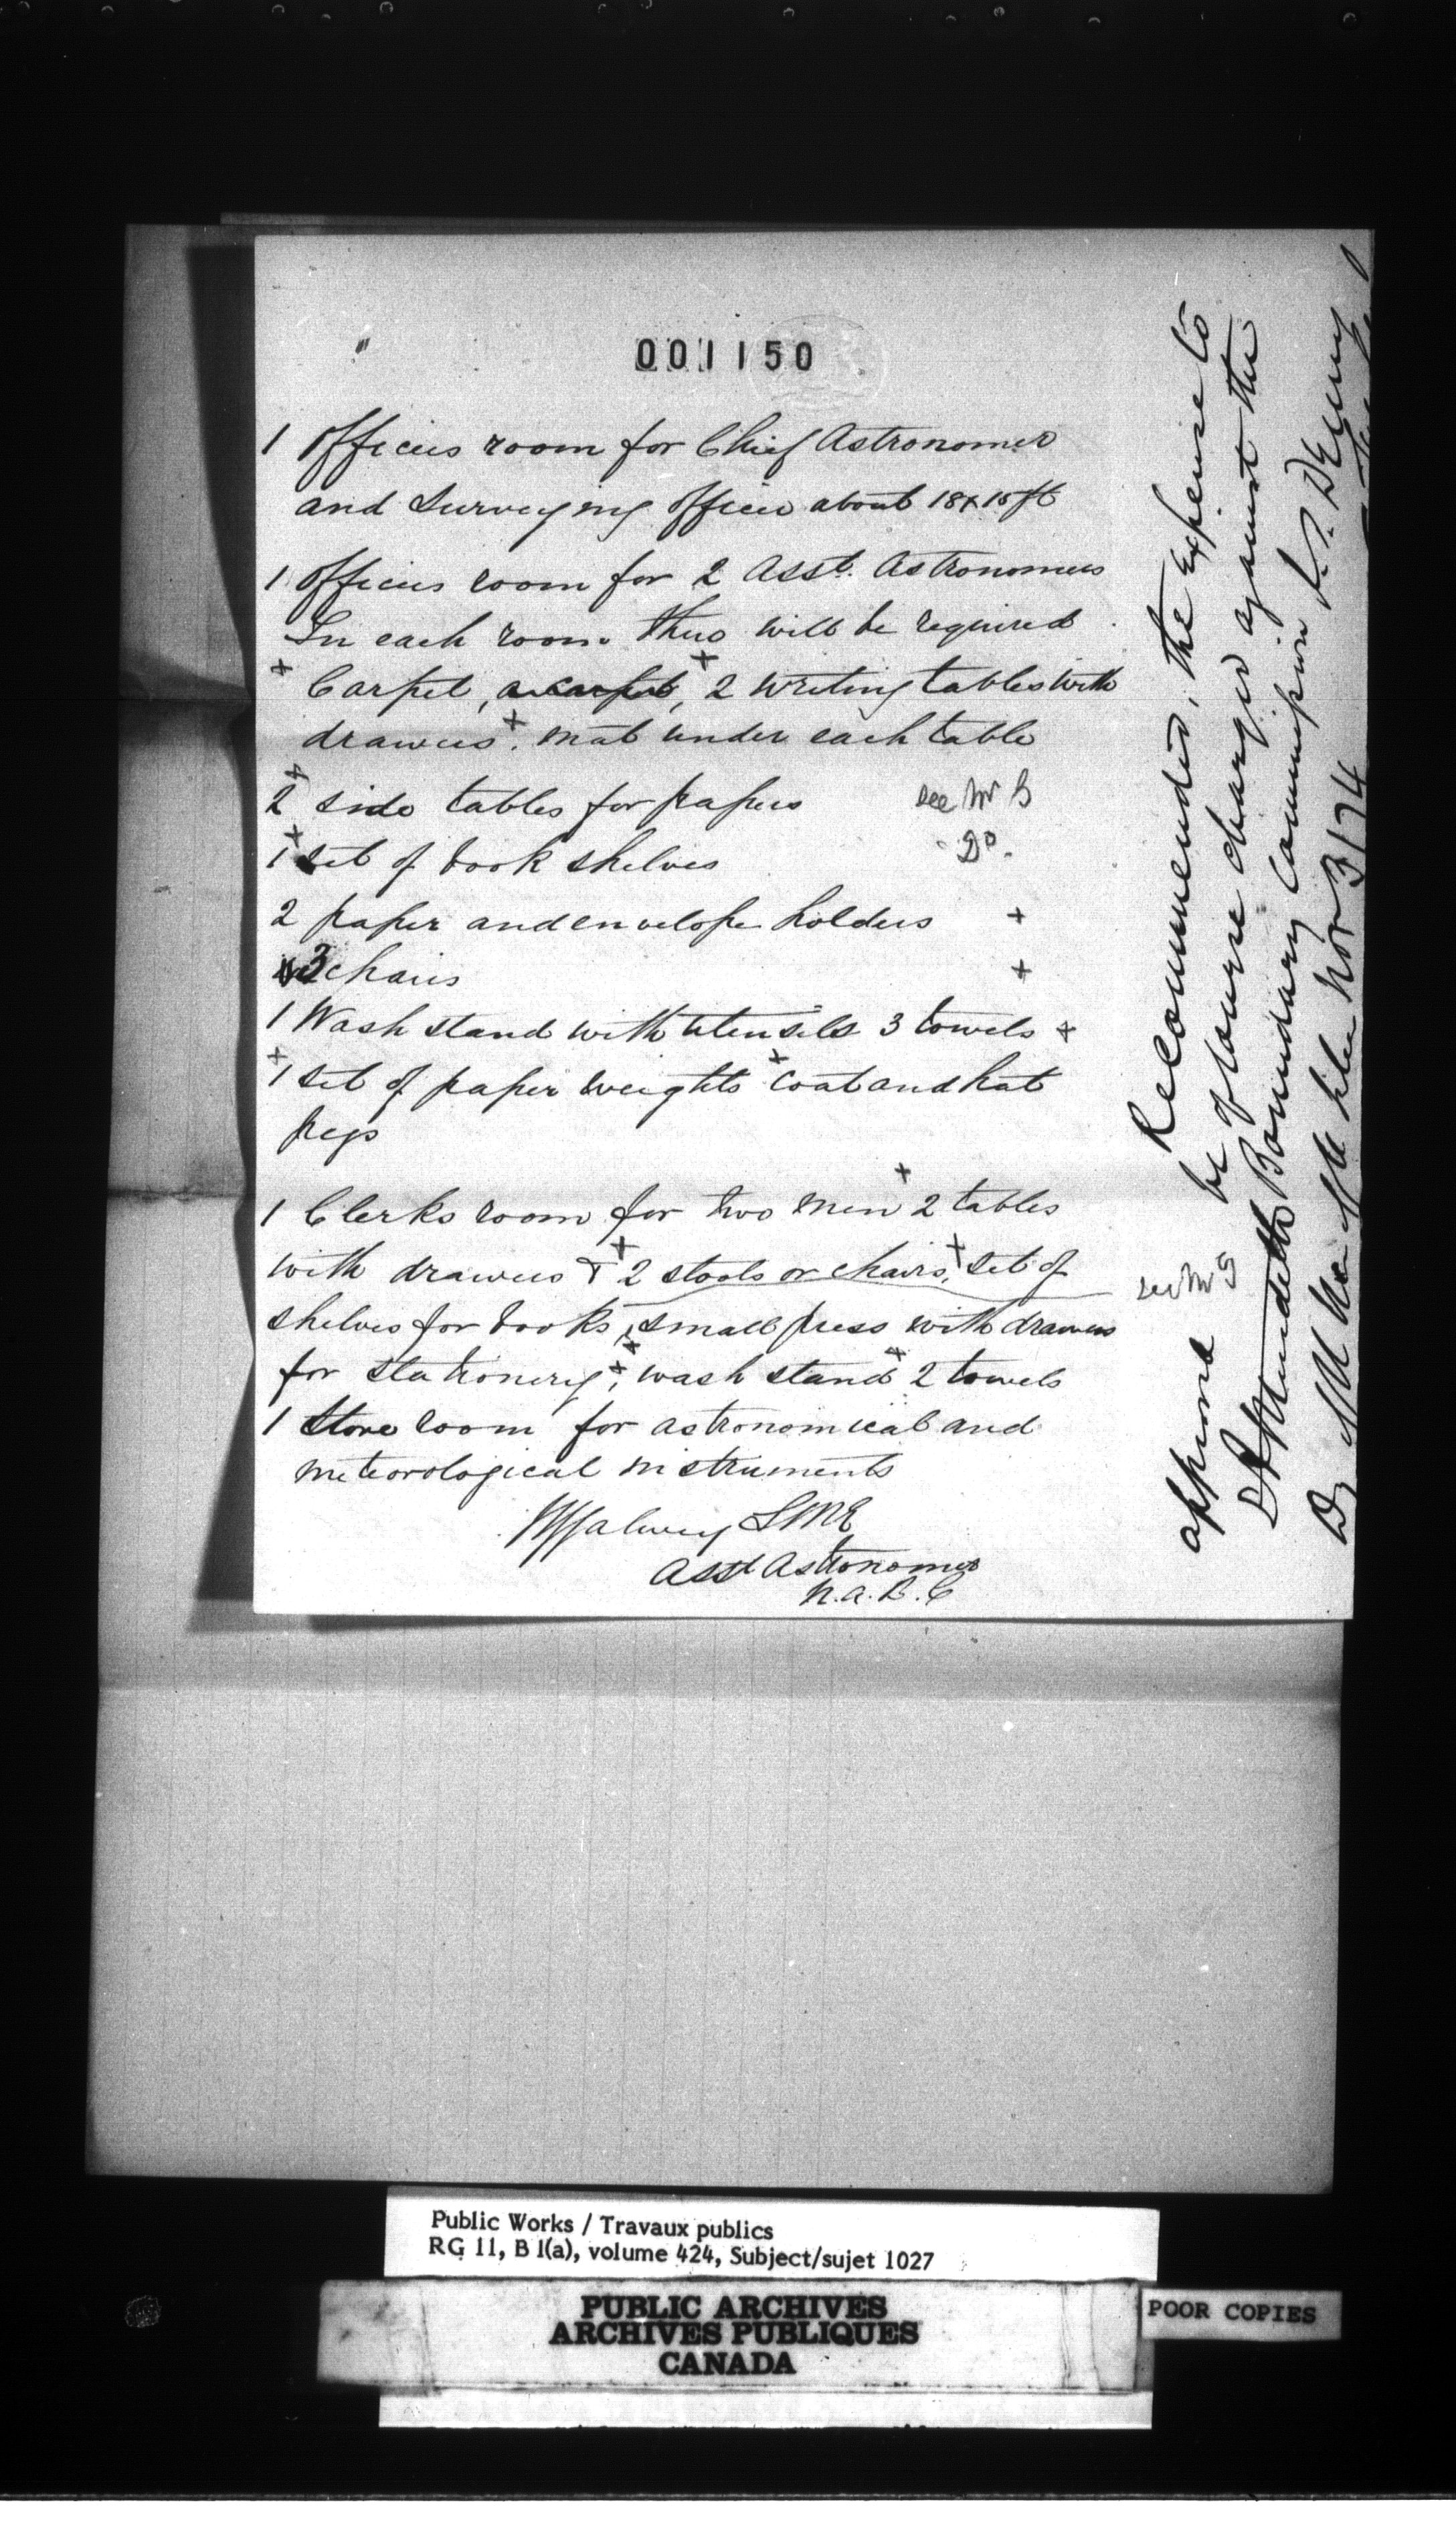 001150
1 Officers room for Chief Astronomer
and Surveying Officer about 18x15ft
1 Officers room for 2 Asst. Astronomers
In each room there will be required
Carpet, a carpet, 2 writing tables with
drawers. mat under each table
2 side tables for papers see Mr B
1 set of book shelves Do.
2 paper and envelope holders +
3 chairs +
1 Wash stand with utensils 3 towels +
1 set of paper weights coat and hat
pegs
1 Clerks room for two men 2 tables
with drawers & 2 stools or chairs, set of
shelves for books, small press with drawers
for stationery, wash stand 2 towels
1 Store room for astronomical and
meteorological instruments
W Galwey Lt RE
Asst Astronomer
N.A.B.C
Recommended, the expense to
be of course charged against the
Boundary Commission
Nov 3/74
approved
D Meredith
see Mr
Public Works / Travaux publics
RG 11, B 1(a), volume 424, Subject/sujet 1027
PUBLIC ARCHIVES
ARCHIVES PUBLIQUES
CANADA
POOR COPIES